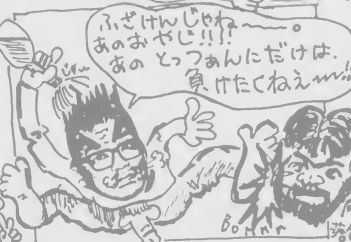 ふざけんじゃね〜〜。
あのおやじ!!!!
あの とっつぁんにだけは、
負けたくねえ〜〜!!